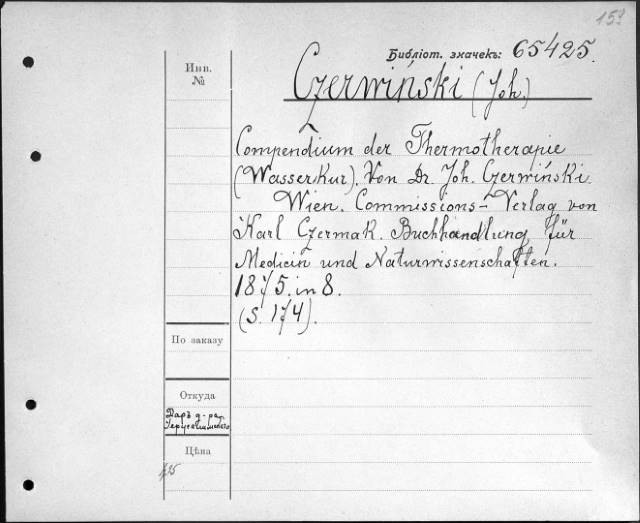 153
Библіот. значекъ: 65425.
Инв.
№
Czerwiński (Joh.)
Compendium der Thermotherapie
(Wasserkur). Von Dr. Joh. Czerwiński.
Wien. Commissions-Verlag von
Karl Czermak. Buchhandlung für
Medicin und Naturwissenschaften.
1875. in 8.
(S. 174).
По заказу
Откуда
Даръ д-ра
Цѣна